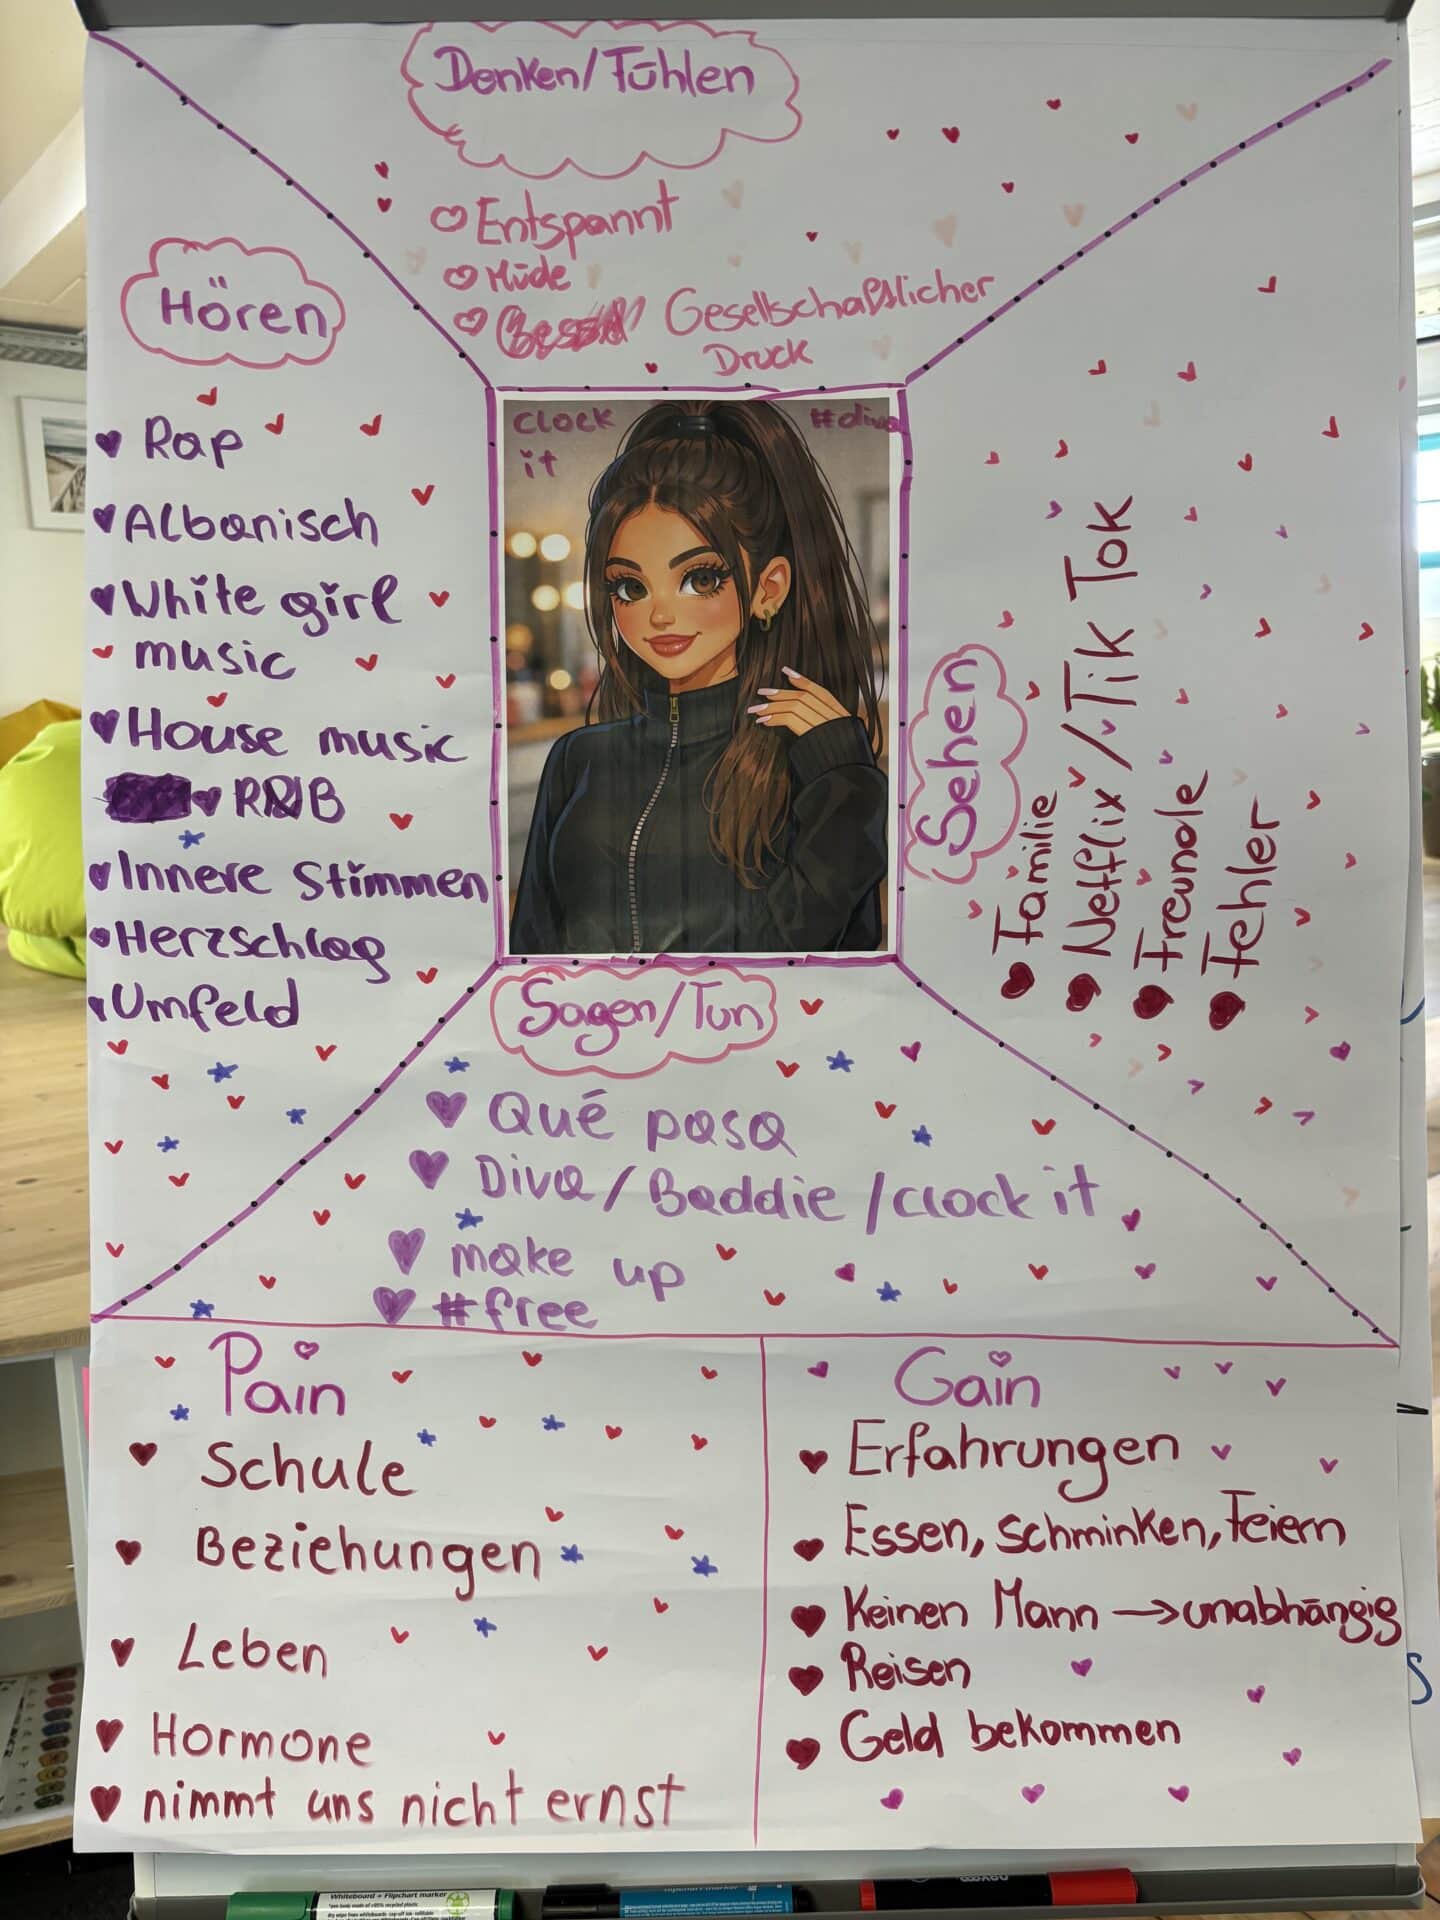 Denken/Fühlen
Entspannt
Müde
Gesellschaftlicher
Druck
Hören
Rap
Albanisch
White girl
music
House music
RNB
Innere Stimmen
Herzschlag
Umfeld
Clock
it
#diva
Sehen
Familie
Netflix/Tik Tok
Freunde
Fehler
Sagen/Tun
Qué pasa
Diva/Baddie/clock it
make up
#free
Pain
Schule
Beziehungen
Leben
Hormone
nimmt uns nicht ernst
Gain
Erfahrungen
Essen, schminken, Feiern
Keinen Mann → unabhängig
Reisen
Geld bekommen
Whiteboard + Flipchart marker